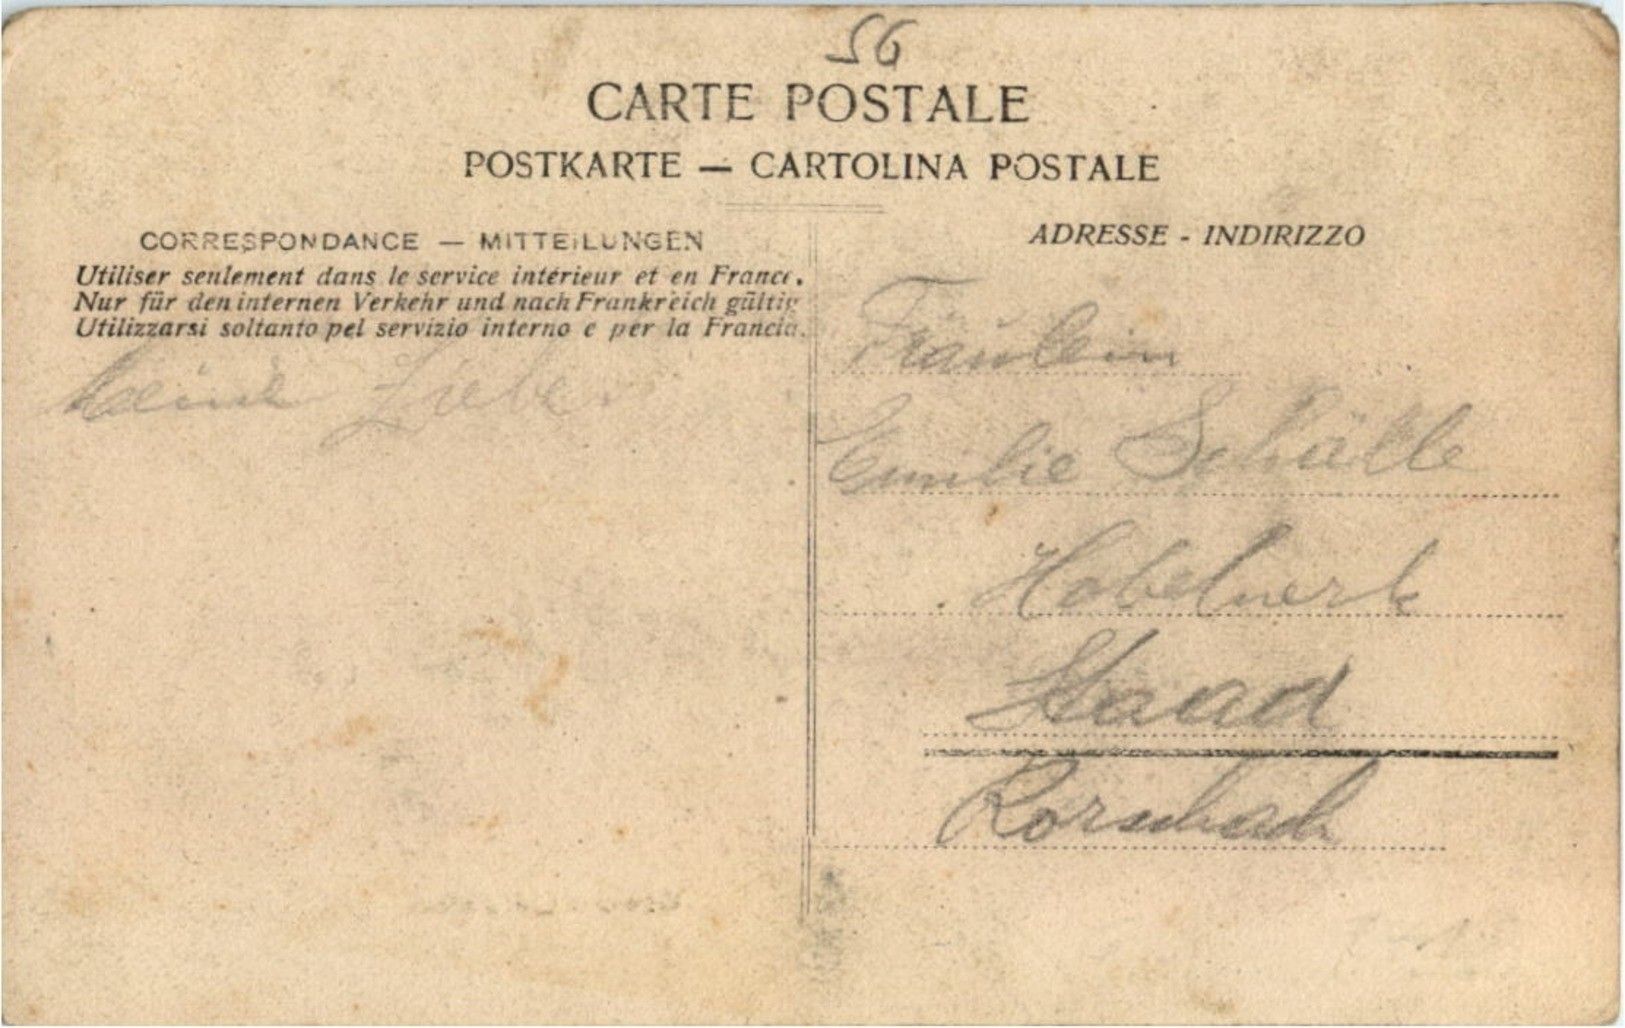 56
CARTE POSTALE
POSTKARTE — CARTOLINA POSTALE
CORRESPONDANCE — MITTEILUNGEN
Utiliser seulement dans le service intérieur et en France.
Nur für den internen Verkehr und nach Frankreich gültig
Utilizzarsi soltanto pel servizio interno e per la Francia.
ADRESSE - INDIRIZZO
Fräulein
Emilie Schälle
Hobelwerk
Staad
Rorschach